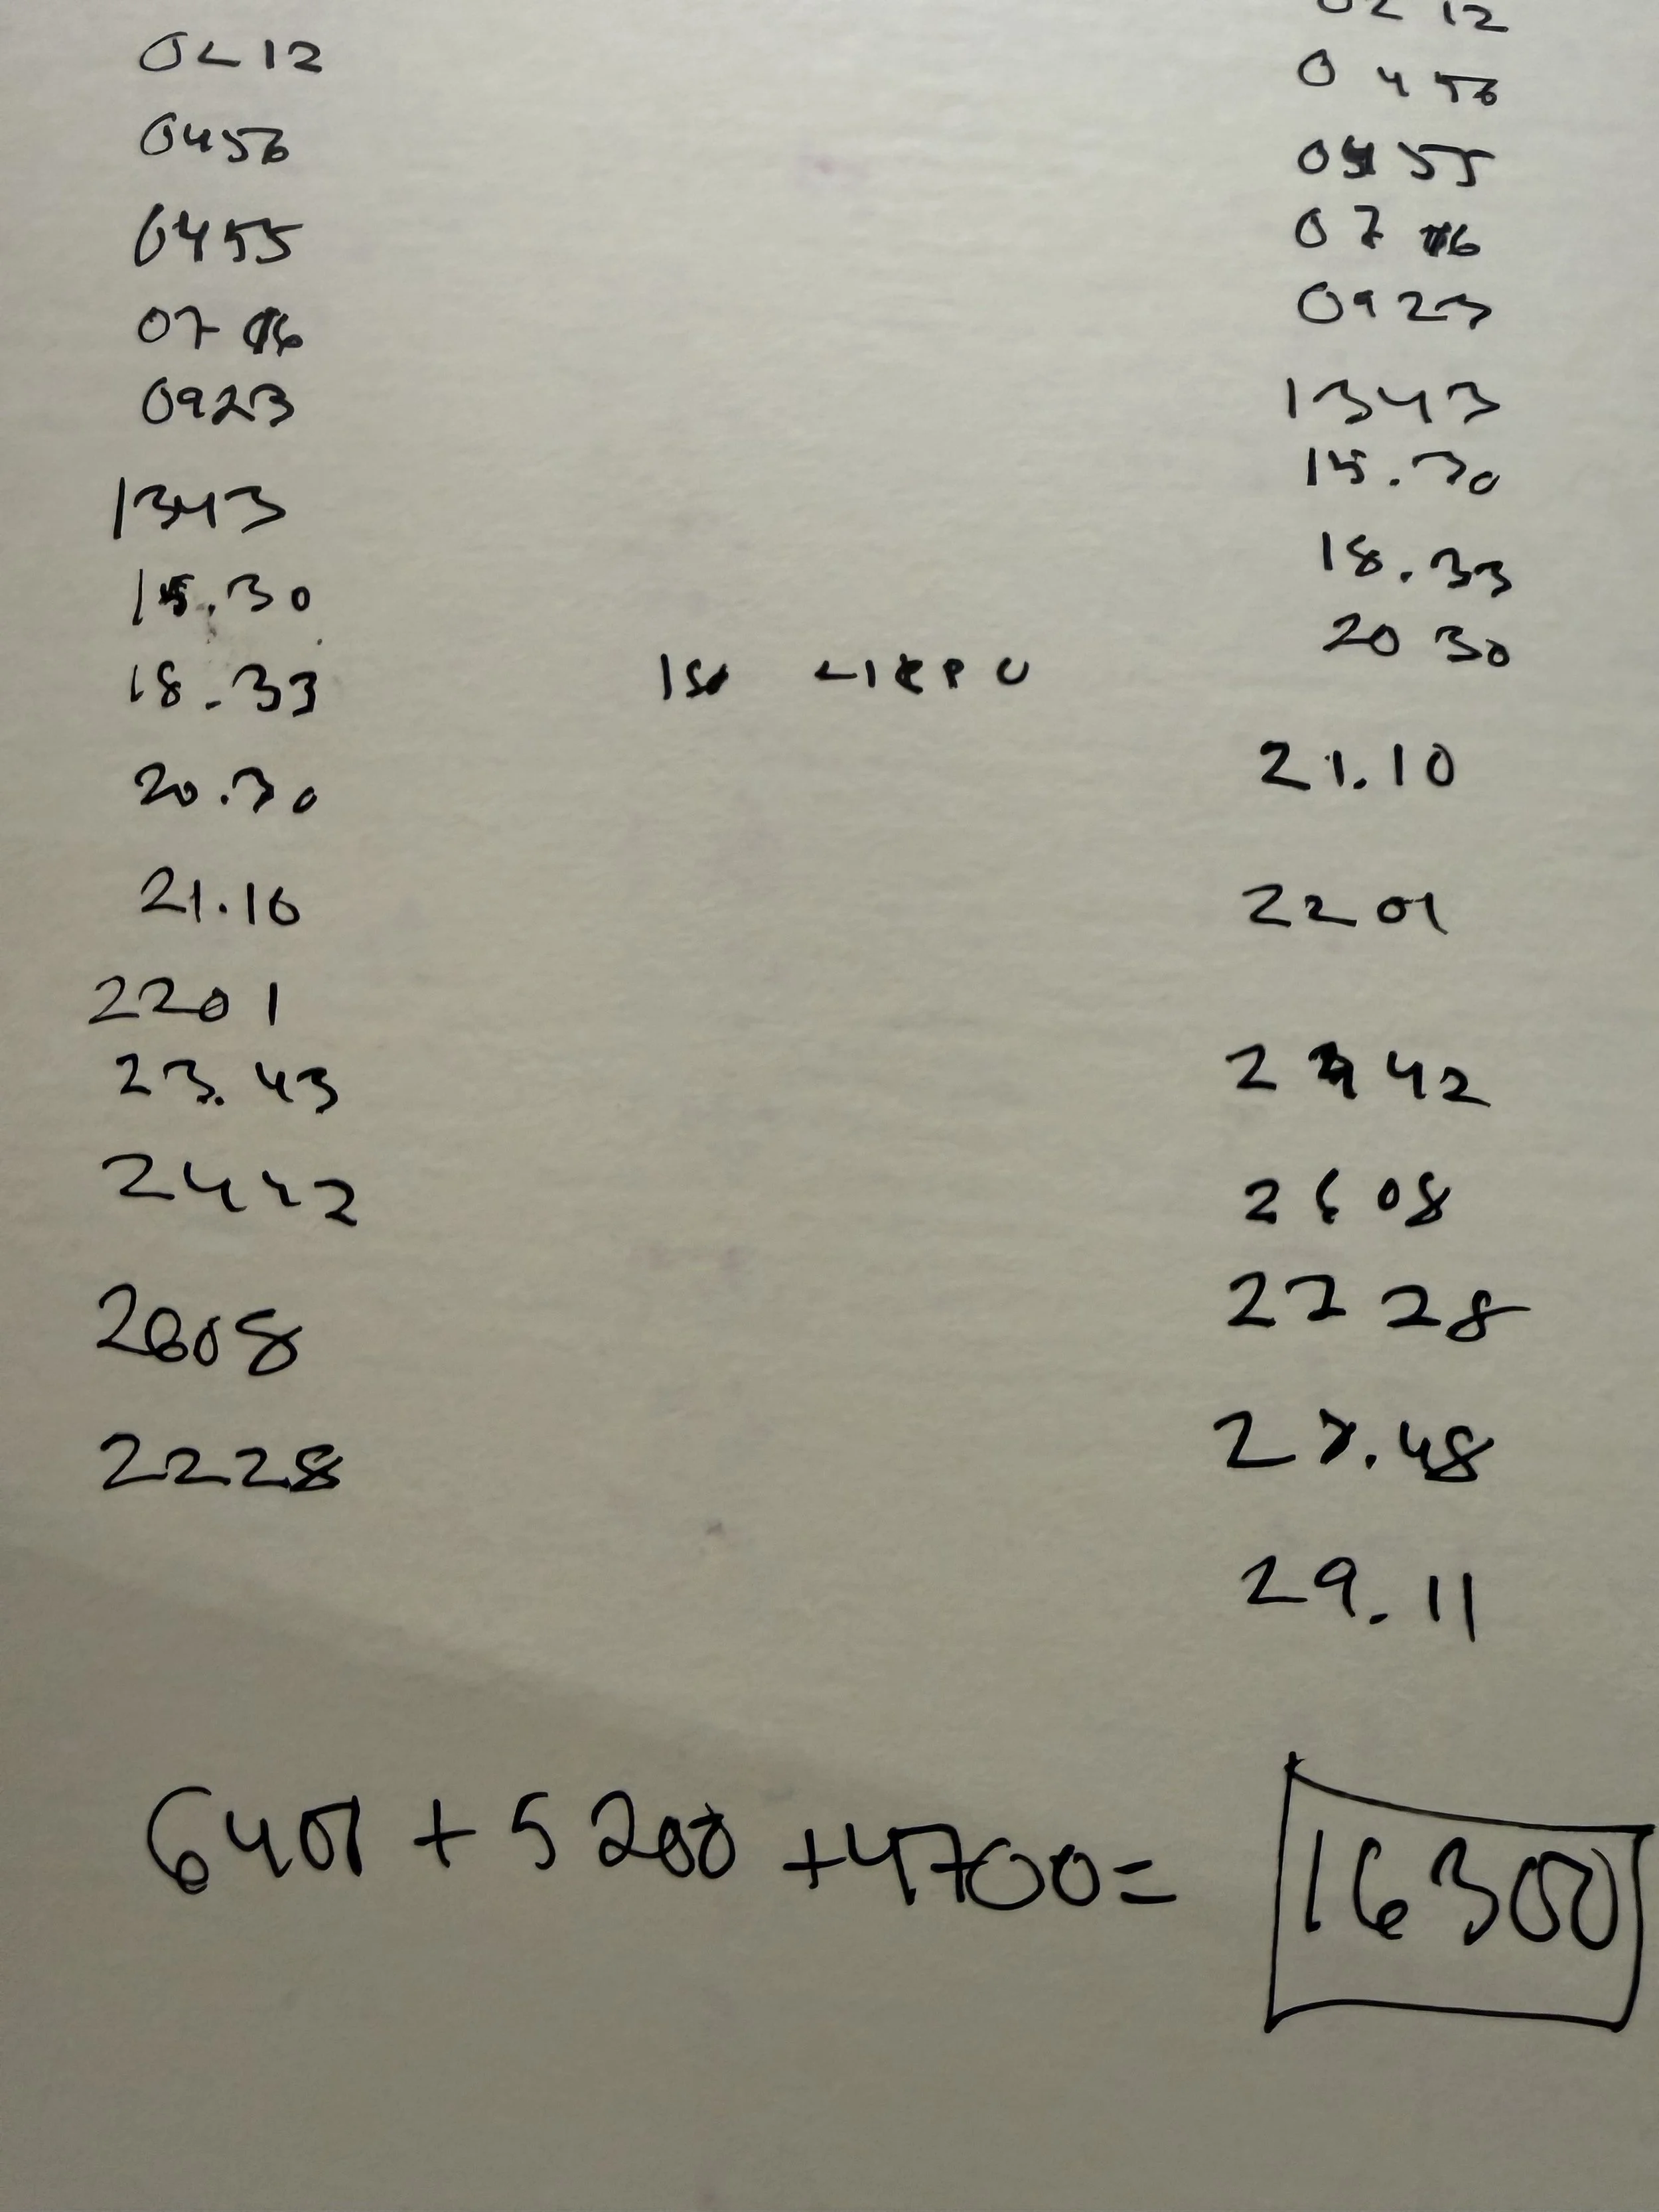 0212
0456
0455
0716
0923
1343
15.30
18.33
20.30
21.10
2201
23.43
2442
2608
2228
0212
0456
0455
0716
0923
1343
15.30
18.33
20 30
21.10
2201
24 42
2608
27 28
27.48
29.11
6400 + 5200 + 4700 =
16300